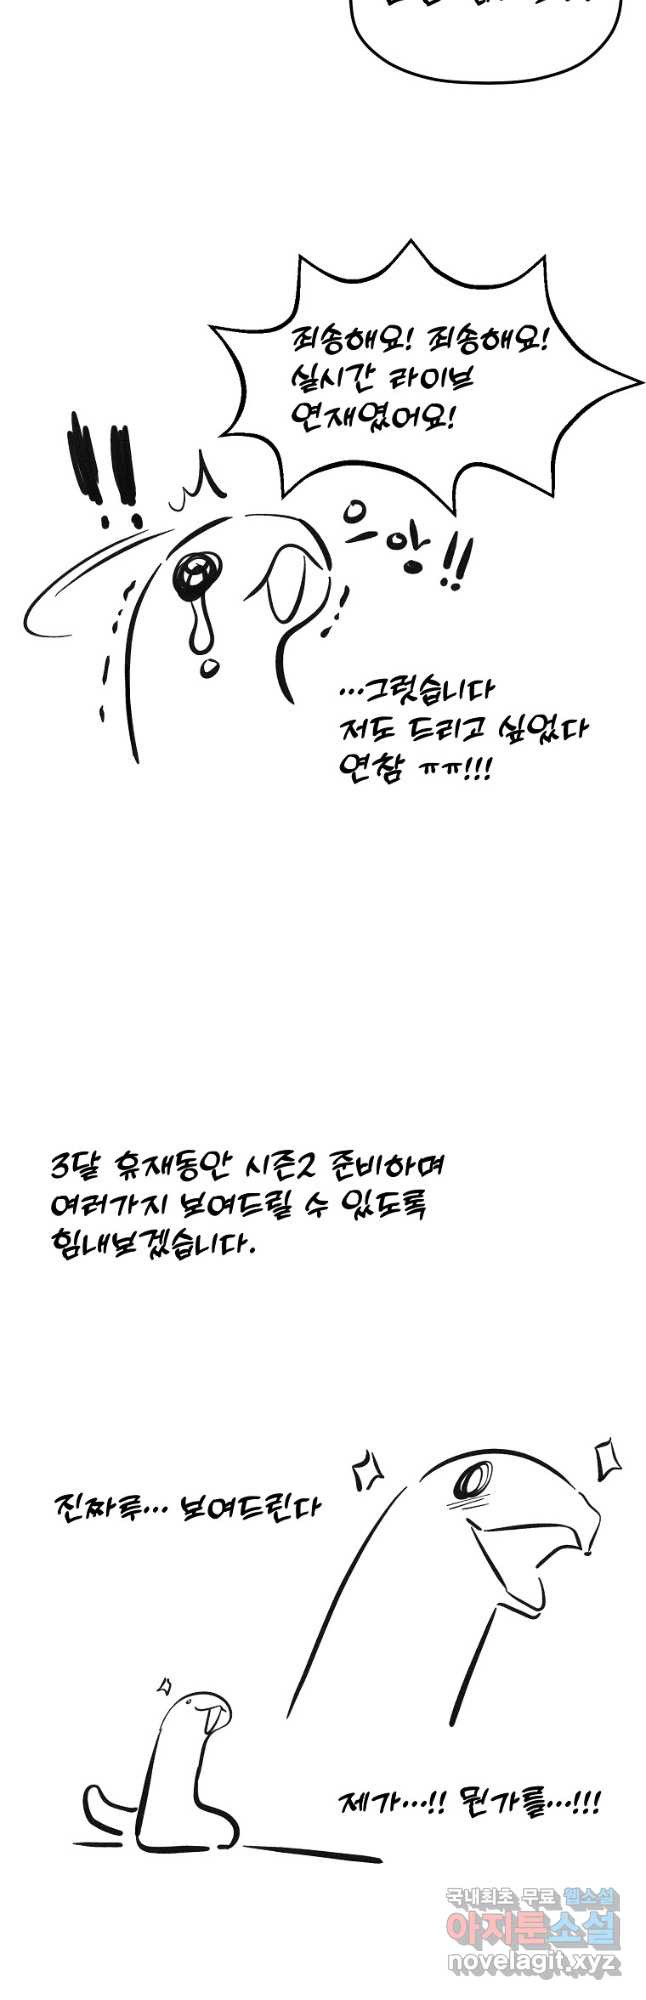 죄송해요! 죄송해요!
실시간 라이브
연재였어요!
으앙!!
…그렇습니다
저도 드리고 싶었다
연참 ㅠㅠ!!!
3달 휴재동안 시즌2 준비하며
여러가지 보여드릴 수 있도록
힘내보겠습니다.
진짜루… 보여드린다
제가…!! 뭔가를…!!!
국내최초 무료 웹소설
아지툰소설
novelagit.xyz